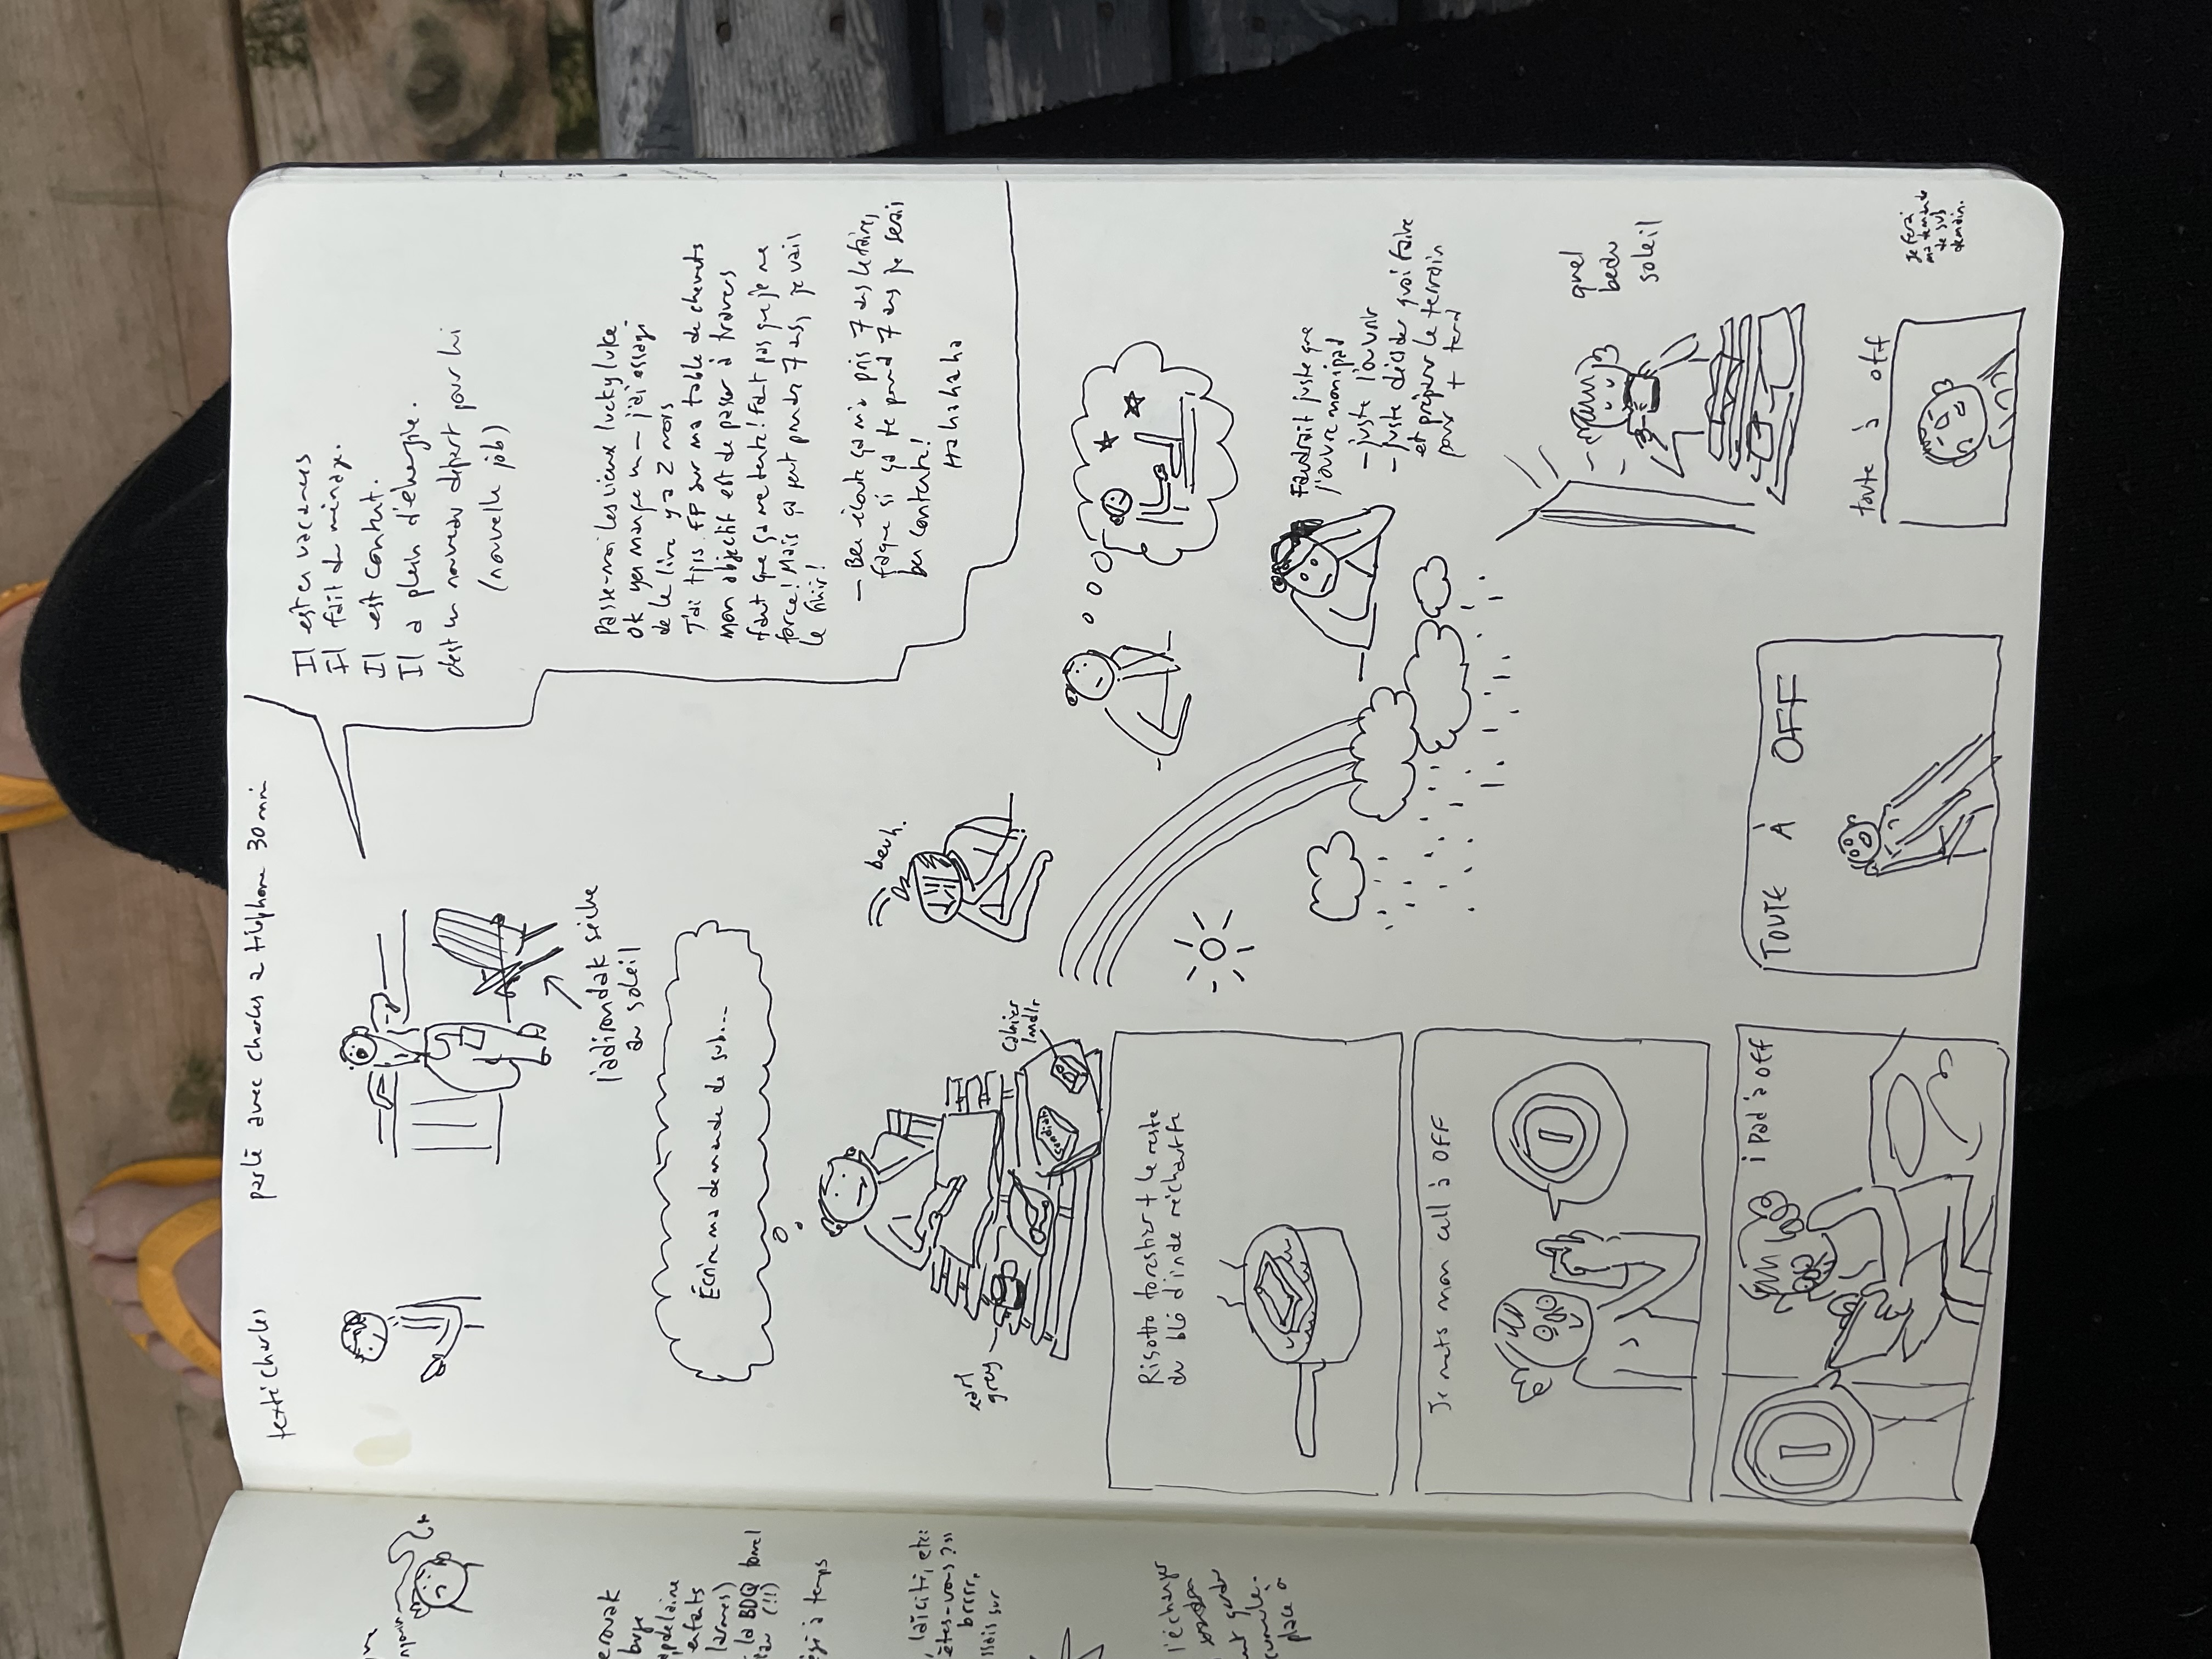 texti charles
parlé avec charles a téléphone 30 min
Il est en vacances
Il fait du ménage.
Il est content.
Il a plein d'énergie.
c'est un nouveau départ pour lui
(nouvelle job)
l'adirondak sèche
au soleil
Passe-moi les vieux lucky luke
ok yen manque un — j'ai
de le lire y a 2 mois
FP sur ma table de chevets
mon objectif est de passer à travers
faut que ça me tente! faut pas que je me
force! Mais ça peut prendre 7 ans, je vais
le finir!
— Ben écoute ça m'a pris 7 ans le faire,
faque si ça te prend 7 ans je serais
ben contente!
Hahahaha
Écrire ma demande de sub...
beuh.
earl
grey
cahier
Faudrait juste que
j'ouvre monipad
— juste l'ouvrir
— juste décider quoi faire
et préparer le terrain
pour + tard
quel
beau
soleil
Risotto forestier + le reste
du blé d'inde réchauffé
Je mets mon cell à OFF
iPad à off
TOUTE À OFF
toute à off
Je ferai
ma demande
de sub
demain.
enfants
larmes)
la BDQ
(!!!)
à temps
laïcité, etc:
êtes-vous?"
brrrr,
l'échanger
place à